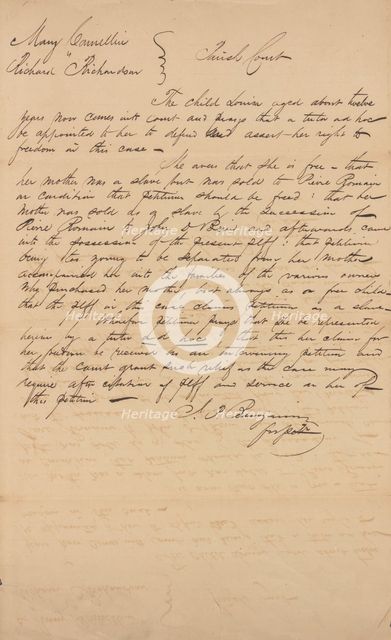 Mary Camellier
Richard Richardson
Parish Court
The child Louisa aged about twelve
years now comes into court and prays that a tutor ad hoc
be appointed to her to defend and assert her right to
freedom in this case —
She avers that she is free — that
her mother was a slave but was sold to Pierre Romain
on condition that petitioner should be freed : that her
mother was sold as a slave by the succession of
Pierre Romain to and afterwards came
into the possession of the present Plff : that petitioner
being too young to be separated from her mother
accompanied her into the families of the various owners
who purchased her mother but always as a free child
that the Plff in this case claims petitioner as a slave
Wherefore petitioner prays that she be represented
herein by a tutor ad hoc that this her claim for
her freedom be received as an intervening petition and
that the Court grant such relief as the case may
require after citation of Plff and service on her of
this petition —
J. P. Benjamin
for petr
Heritage
Heritage
Heritage
Heritage
Heritage
Heritage
Heritage